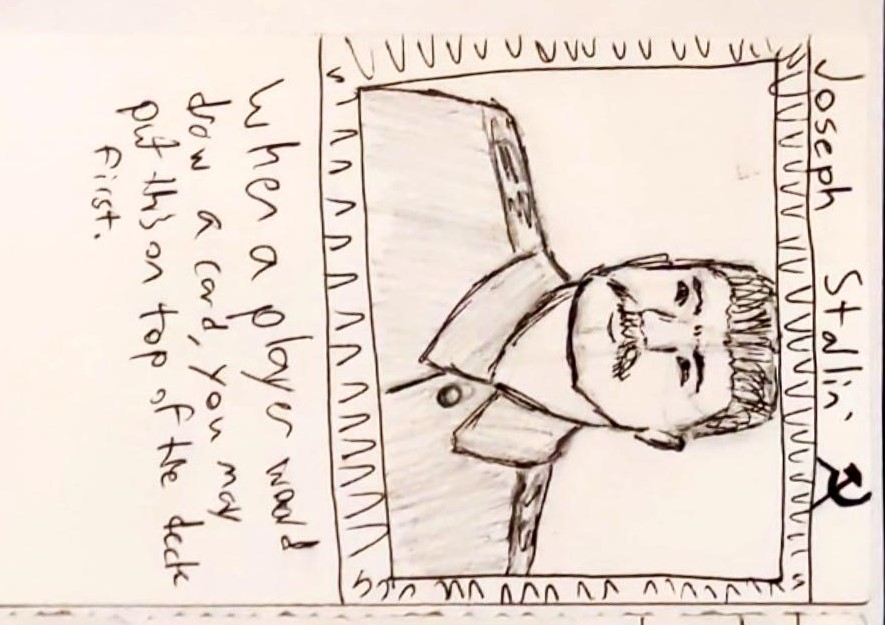 Joseph Stallin'
When a player woud
draw a card, you may
put this on top of the deck
first.